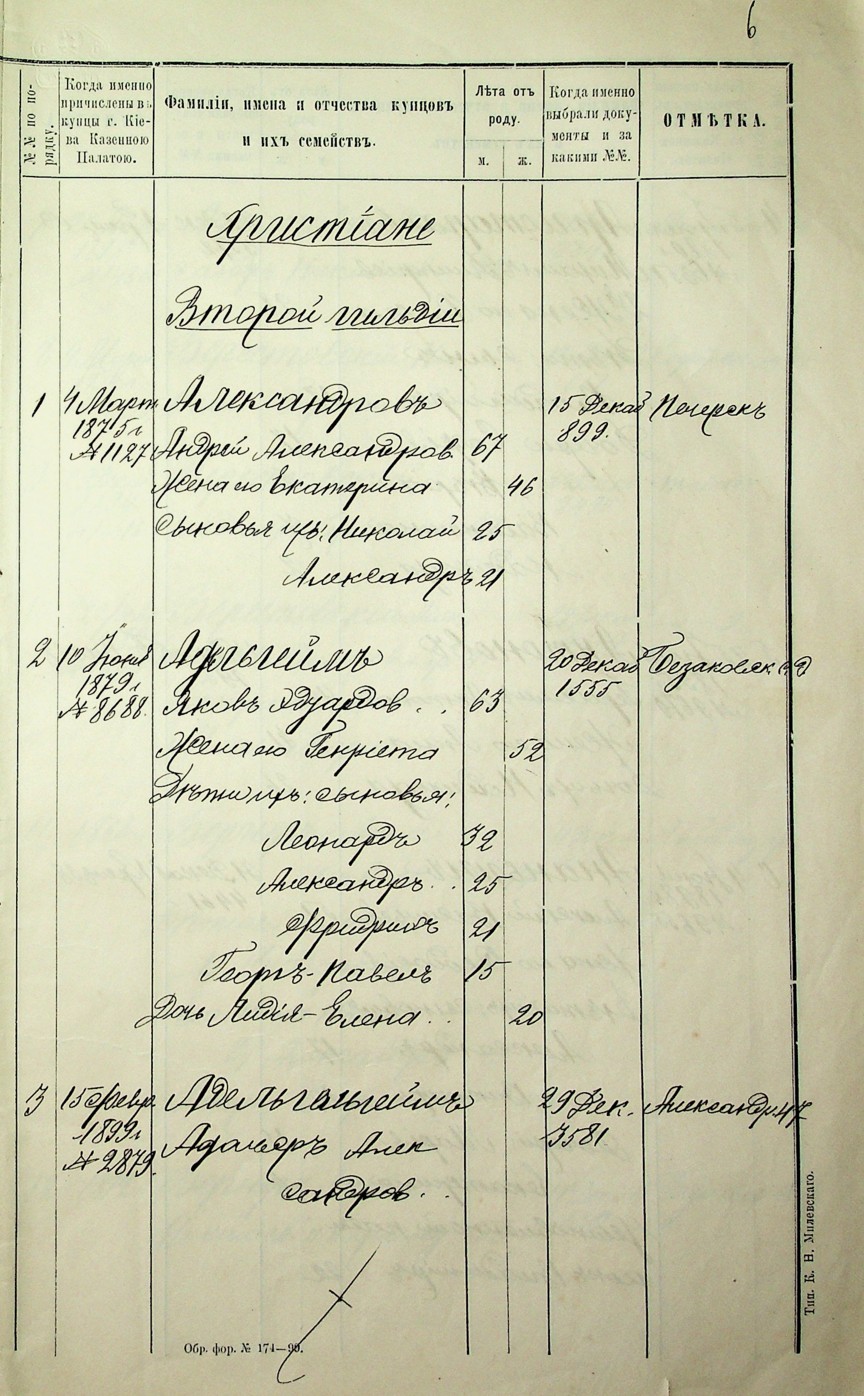 6
№№ по по-
рядку.
Когда именно
причислены въ
купцы г. Кіе-
ва Казенною
Палатою.
Фамиліи, имена и отчества купцовъ
и ихъ семействъ.
Лѣта отъ
роду.
м. ж.
Когда именно
выбрали доку-
менты и за
какими №№.
ОТМѢТКА.
Христіане
Второй гильдіи
1 4 Март Александровъ 15 Декаб Печерск
1875 г 899.
№ 1127 Андрей Александров 67
Жена его Екатерина 46
Сыновья ихъ: Николай 25
Александръ 21
2 10 Іюня Адельгеймъ 20 Декаб Безаковск
1879 г 1555
№ 8688 Яковъ Эдуардов . . 63
Жена его Генріета 52
Дѣти ихъ: сыновья:
Леонардъ 32
Александръ . . 25
Фридрихъ 21
Георгъ-Павелъ 15
Дочь Лидія-Елена . . 20
3 15 Февр. 29 Дек. Александр. 47
1899 г 3581
№ 2879 Алек
сандров . .
Обр. фор. № 174—99.
Тип. К. Н. Милевскаго.